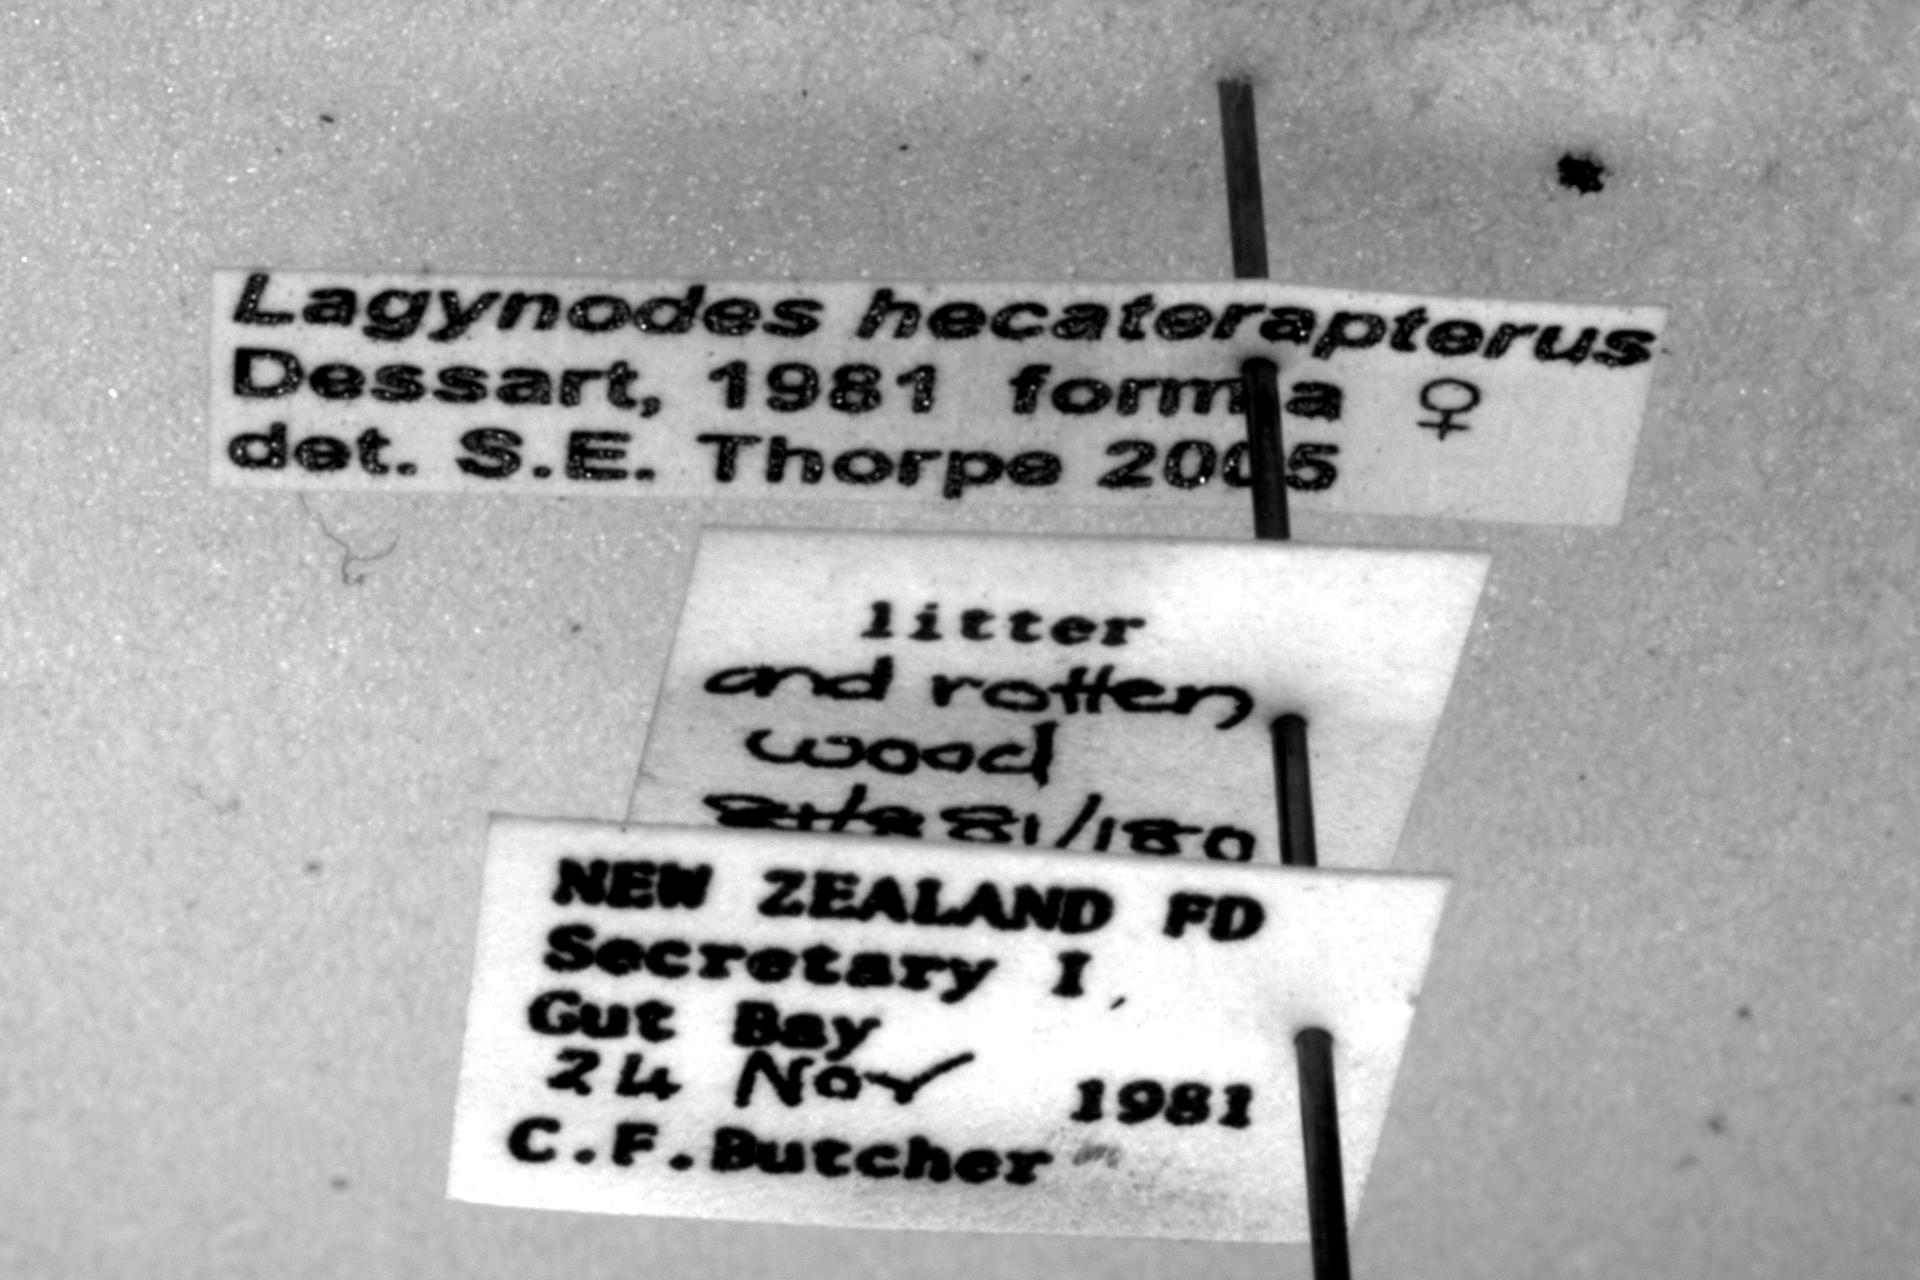 Lagynodes hecaterapterus
Dessart, 1981 form a ♀
det. S.E. Thorpe 2005
litter
and rotten
wood
81/180
NEW ZEALAND FD
Secretary I,
Gut Bay
24 Nov 1981
C.F.Butcher